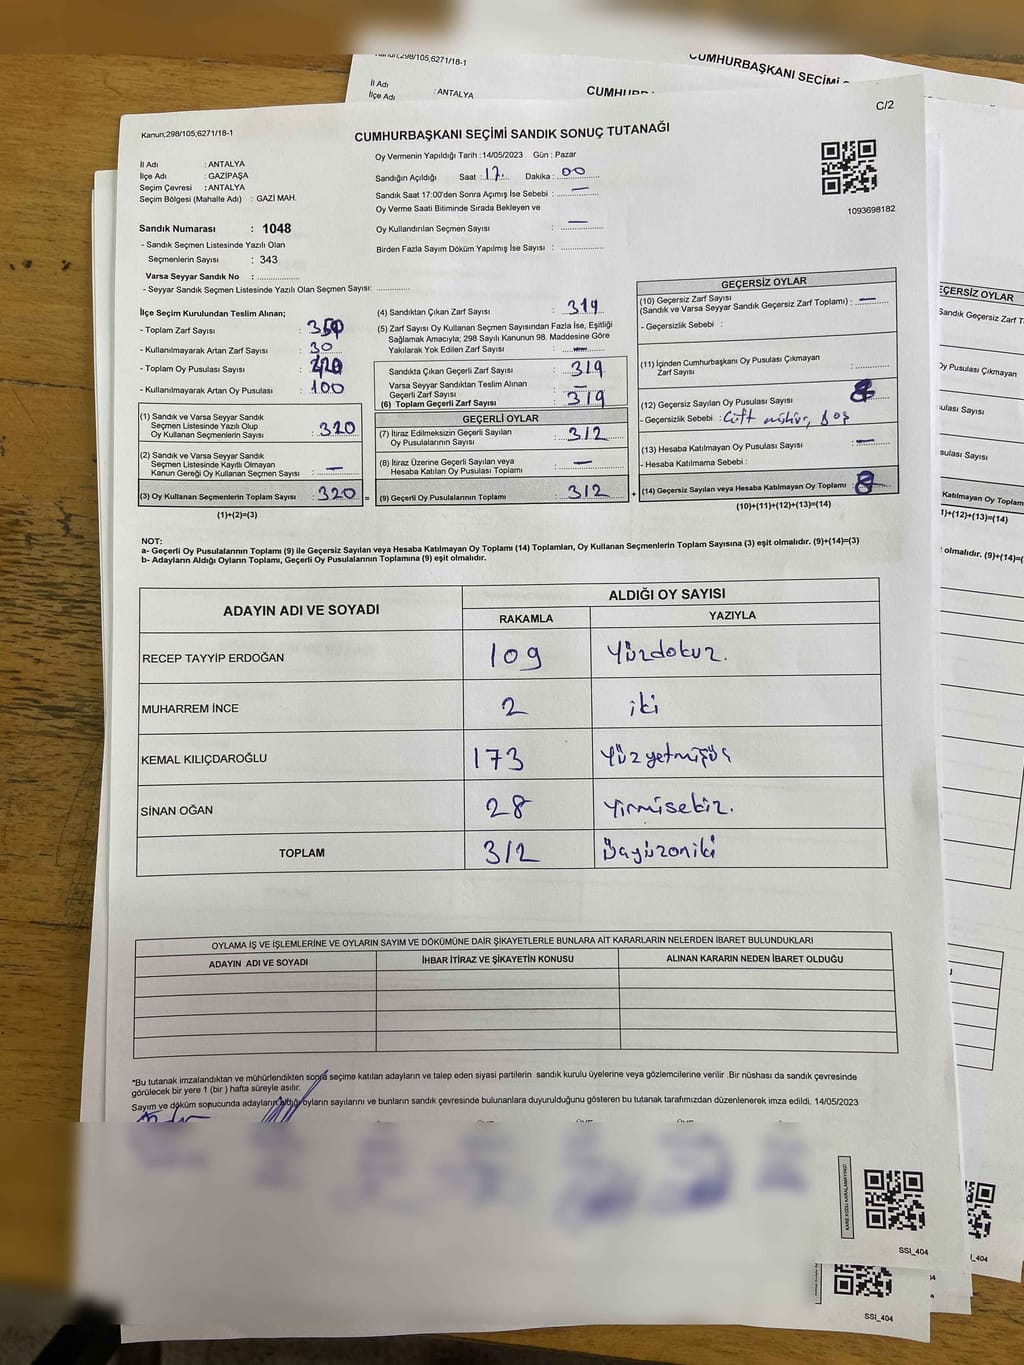 Kanun;298/105;6271/18-1
CUMHURBAŞKANI SEÇİMİ
İl Adı : ANTALYA
İlçe Adı
C/2
Kanun;298/105;6271/18-1
CUMHURBAŞKANI SEÇİMİ SANDIK SONUÇ TUTANAĞI
İl Adı : ANTALYA
İlçe Adı : GAZİPAŞA
Seçim Çevresi : ANTALYA
Seçim Bölgesi (Mahalle Adı) : GAZİ MAH.
Sandık Numarası : 1048
- Sandık Seçmen Listesinde Yazılı Olan
Seçmenlerin Sayısı : 343
Varsa Seyyar Sandık No : ..............
- Seyyar Sandık Seçmen Listesinde Yazılı Olan Seçmen Sayısı: ............
Oy Vermenin Yapıldığı Tarih : 14/05/2023 Gün : Pazar
Sandığın Açıldığı Saat : 17. Dakika : 00
Sandık Saat 17:00'den Sonra Açımış İse Sebebi : —
Oy Verme Saati Bitiminde Sırada Bekleyen ve
Oy Kullandırılan Seçmen Sayısı : —
Birden Fazla Sayım Döküm Yapılmış İse Sayısı : ..............
1093698182
İlçe Seçim Kurulundan Teslim Alınan;
- Toplam Zarf Sayısı : 350
- Kullanılmayarak Artan Zarf Sayısı : 30
- Toplam Oy Pusulası Sayısı : 420
- Kullanılmayarak Artan Oy Pusulası : 100
(1) Sandık ve Varsa Seyyar Sandık
Seçmen Listesinde Yazılı Olup
Oy Kullanan Seçmenlerin Sayısı : 320
(2) Sandık ve Varsa Seyyar Sandık
Seçmen Listesinde Kayıtlı Olmayan
Kanun Gereği Oy Kullanan Seçmen Sayısı : —
(3) Oy Kullanan Seçmenlerin Toplam Sayısı : 320 =
(1)+(2)=(3)
(4) Sandıktan Çıkan Zarf Sayısı : 319
(5) Zarf Sayısı Oy Kullanan Seçmen Sayısından Fazla İse, Eşitliği
Sağlamak Amacıyla; 298 Sayılı Kanunun 98. Maddesine Göre
Yakılarak Yok Edilen Zarf Sayısı : —
Sandıkta Çıkan Geçerli Zarf Sayısı : 319
Varsa Seyyar Sandıktan Teslim Alınan
Geçerli Zarf Sayısı : —
(6) Toplam Geçerli Zarf Sayısı : 319
GEÇERLİ OYLAR
(7) İtiraz Edilmeksizin Geçerli Sayılan
Oy Pusulalarının Sayısı : 312
(8) İtiraz Üzerine Geçerli Sayılan veya
Hesaba Katılan Oy Pusulası Toplamı : —
(9) Geçerli Oy Pusulalarının Toplamı : 312 +
GEÇERSİZ OYLAR
(10) Geçersiz Zarf Sayısı
(Sandık ve Varsa Seyyar Sandık Geçersiz Zarf Toplamı) : —
- Geçersizlik Sebebi :
(11) İçinden Cumhurbaşkanı Oy Pusulası Çıkmayan
Zarf Sayısı : ............
(12) Geçersiz Sayılan Oy Pusulası Sayısı : 8
- Geçersizlik Sebebi : Çift mühür, boş
(13) Hesaba Katılmayan Oy Pusulası Sayısı : —
- Hesaba Katılmama Sebebi :
(14) Geçersiz Sayılan veya Hesaba Katılmayan Oy Toplamı : 8
(10)+(11)+(12)+(13)=(14)
NOT:
a- Geçerli Oy Pusulalarının Toplamı (9) ile Geçersiz Sayılan veya Hesaba Katılmayan Oy Toplamı (14) Toplamları, Oy Kullanan Seçmenlerin Toplam Sayısına (3) eşit olmalıdır. (9)+(14)=(3)
b- Adayların Aldığı Oyların Toplamı, Geçerli Oy Pusulalarının Toplamına (9) eşit olmalıdır.
ADAYIN ADI VE SOYADI ALDIĞI OY SAYISI
RAKAMLA YAZIYLA
RECEP TAYYİP ERDOĞAN 109 Yüzdokuz.
MUHARREM İNCE 2 iki
KEMAL KILIÇDAROĞLU 173 Yüzyetmişüç
SİNAN OĞAN 28 Yirmisekiz.
TOPLAM 312 Üçyüzoniki
OYLAMA İŞ VE İŞLEMLERİNE VE OYLARIN SAYIM VE DÖKÜMÜNE DAİR ŞİKAYETLERLE BUNLARA AİT KARARLARIN NELERDEN İBARET BULUNDUKLARI
ADAYIN ADI VE SOYADI İHBAR İTİRAZ VE ŞİKAYETİN KONUSU ALINAN KARARIN NEDEN İBARET OLDUĞU
*Bu tutanak imzalandıktan ve mühürlendikten sonra seçime katılan adayların ve talep eden siyasi partilerin sandık kurulu üyelerine veya gözlemcilerine verilir .Bir nüshası da sandık çevresinde
görülecek bir yere 1 (bir ) hafta süreyle asılır.
Sayım ve döküm sonucunda adayların aldığı oyların sayılarını ve bunların sandık çevresinde bulunanlara duyurulduğunu gösteren bu tutanak tarafımızdan düzenlenerek imza edildi. 14/05/2023
SSI_404
SSI_404